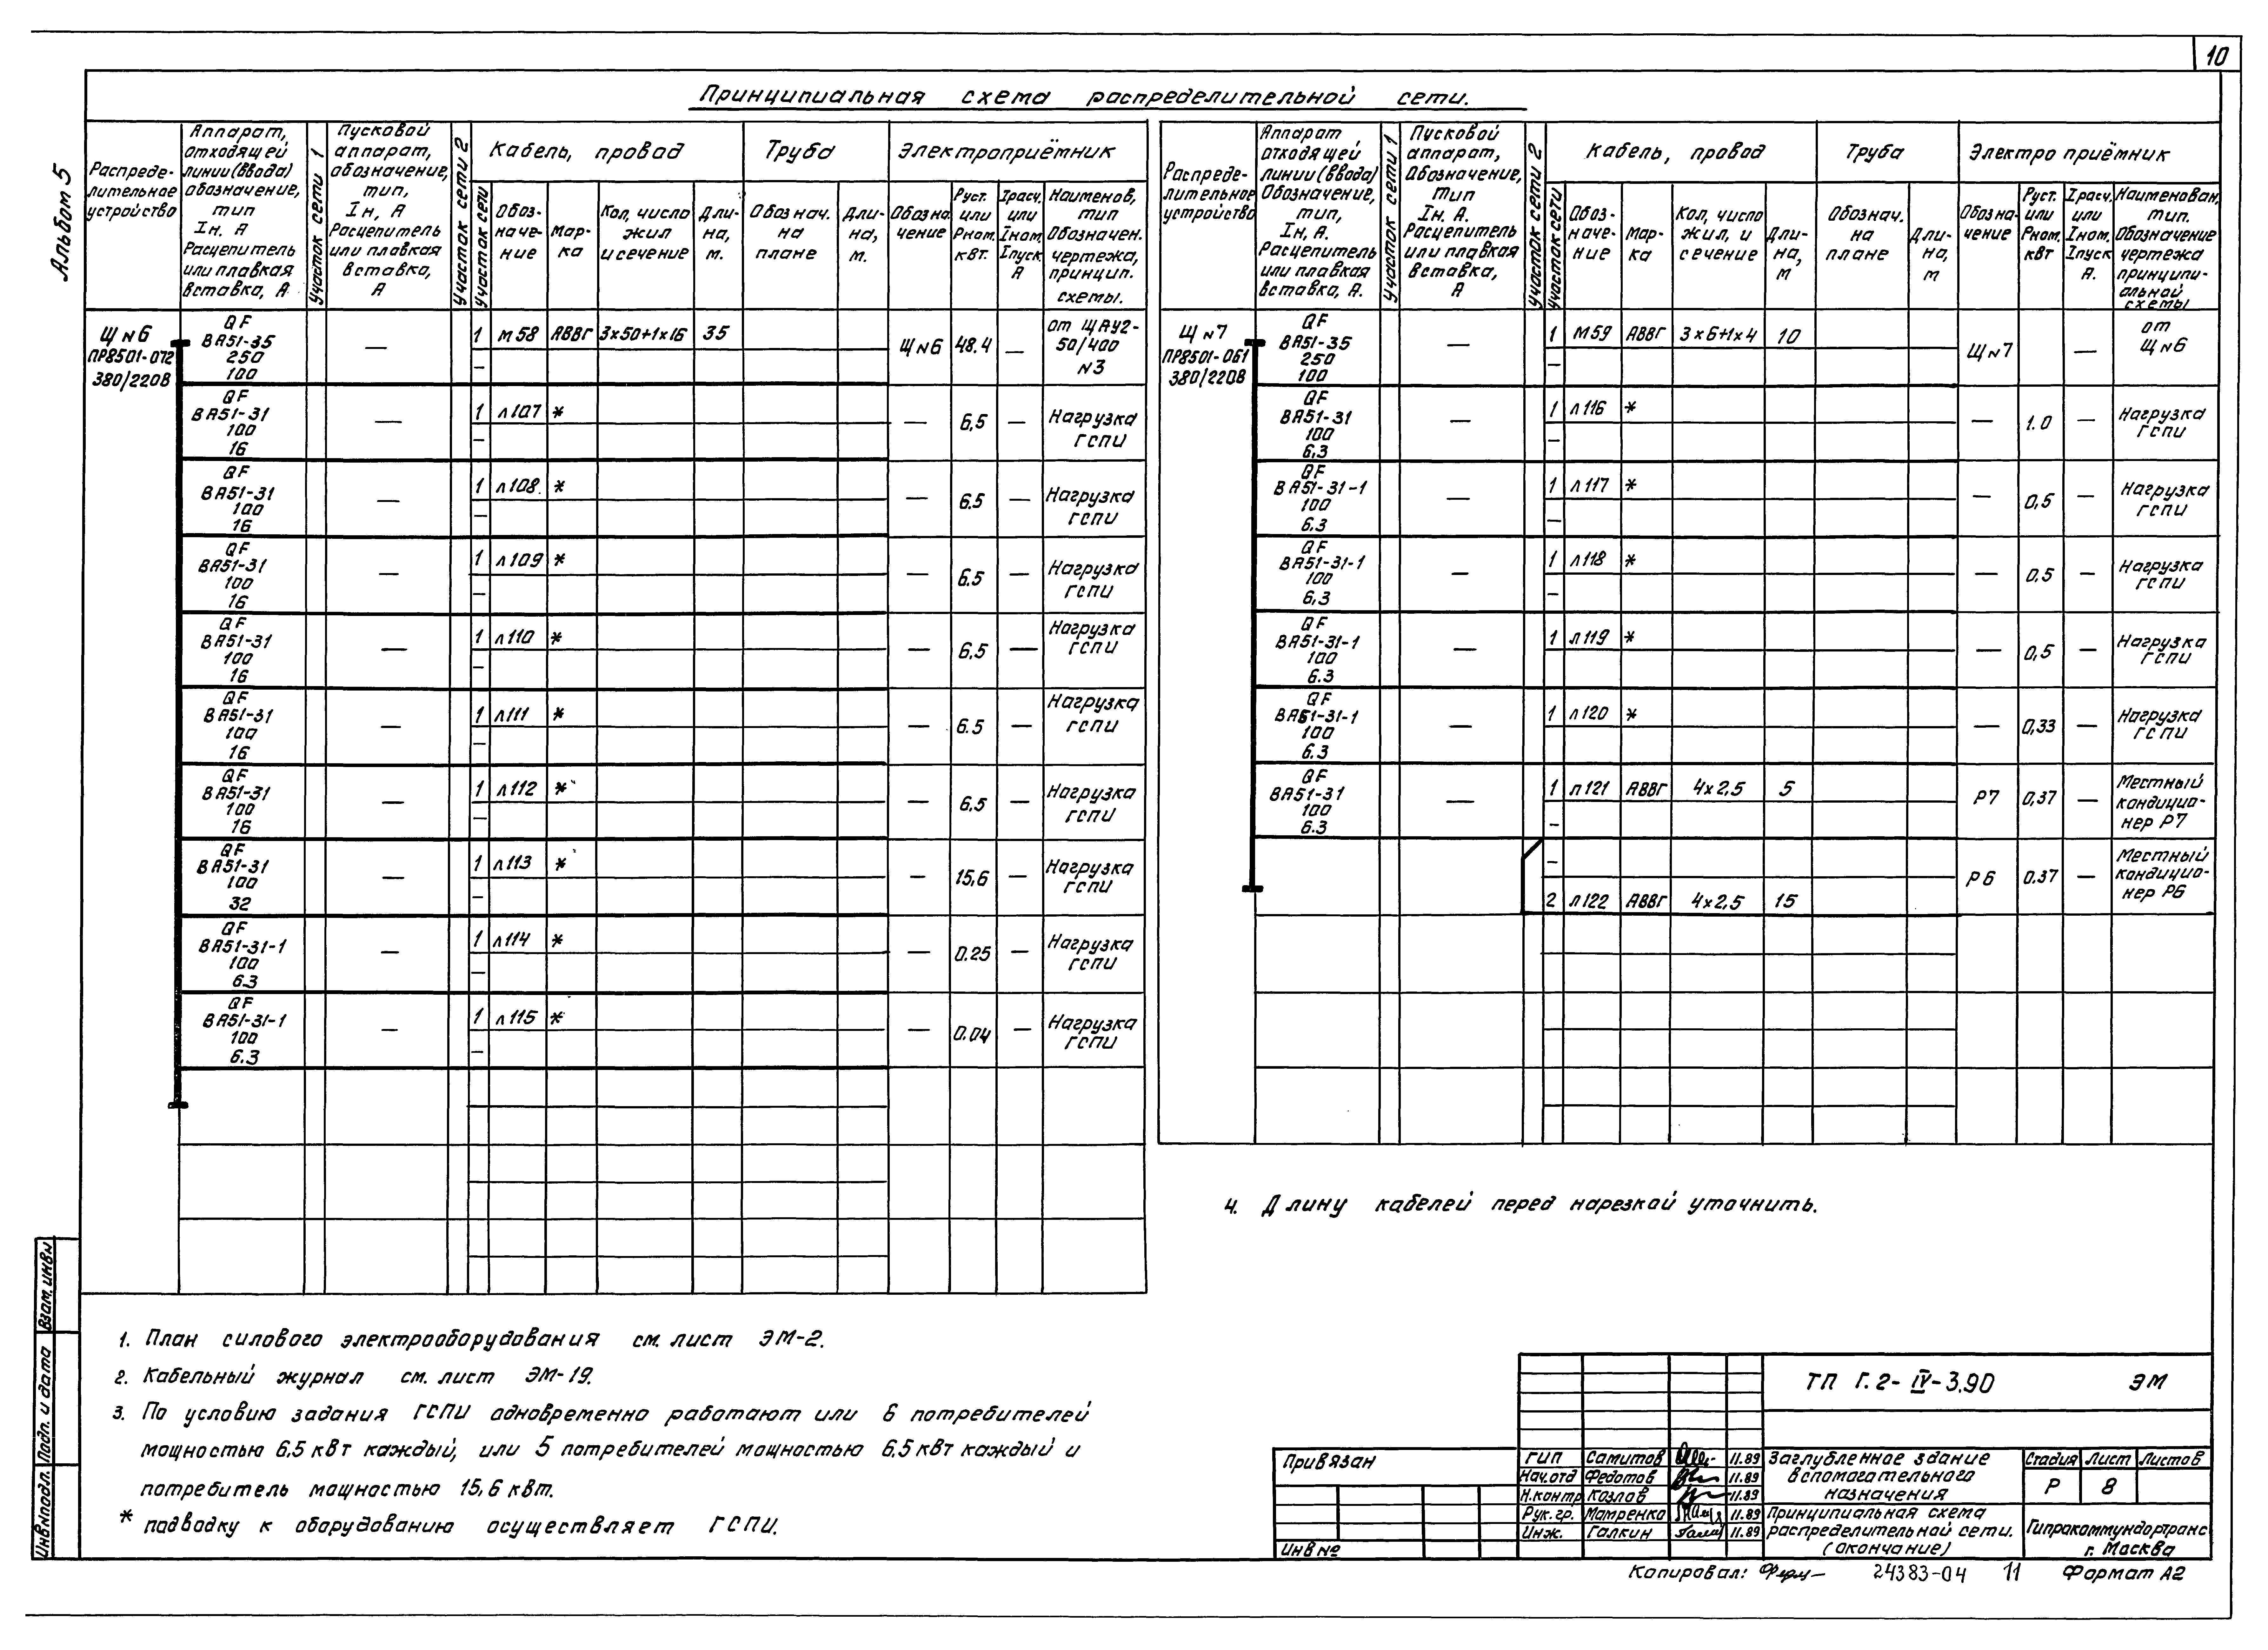 10
Альбом 5
Принципиальная схема распределительной сети.
Распределительное устройство
Аппарат, отходящей линии (ввода) обозначение, тип Iн. А Расцепитель или плавкая вставка, А
Участок сети 1
Пусковой аппарат, обозначение, тип, Iн, А Расцепитель или плавкая вставка, А
Участок сети 2
Участок сети
Кабель, провод
Обозначение
Марка
Кол, число жил и сечение
Длина, м.
Труба
Обознач. на плане
Длина, м.
Электроприёмник
Обозначение
Руст. или Рном. кВт.
Iрасч. или Iном. Iпуск А
Наименов, тип Обозначен. чертежа, принцип. схемы.
Щ №6 ПР8501-072 380/220В
QF ВА51-35 250 100 — 1 М58 АВВГ 3х50+1х16 35 — Щ №6 48.4 — от ЩАУ2-50/400 №3
QF ВА51-31 100 16 — 1 л107 * — — 6,5 — Нагрузка ГСПИ
QF ВА51-31 100 16 — 1 л108. * — — 6.5 — Нагрузка ГСПИ
QF ВА51-31 100 16 — 1 л109 * — — 6.5 — Нагрузка ГСПИ
QF ВА51-31 100 16 — 1 л110 * — — 6,5 — Нагрузка ГСПИ
QF ВА51-31 100 16 — 1 л111 * — — 6.5 — Нагрузка ГСПИ
QF ВА51-31 100 16 — 1 л112 * — — 6,5 — Нагрузка ГСПИ
QF ВА51-31 100 32 — 1 л113 * — — 15,6 — Нагрузка ГСПИ
QF ВА51-31-1 100 6.3 — 1 л114 * — — 0.25 — Нагрузка ГСПИ
QF ВА51-31-1 100 6.3 — 1 л115 * — — 0.04 — Нагрузка ГСПИ
Распределительное устройство
Аппарат отходящей линии (ввода) Обозначение, тип, Iн, А. Расцепитель или плавкая вставка, А.
Участок сети 1
Пусковой аппарат, Обозначение, тип Iн. А. Расцепитель или плавкая вставка, А
Участок сети 2
Участок сети
Кабель, провод
Обозначение
Марка
Кол, число жил, и сечение
Длина, м
Труба
Обознач. на плане
Длина, м
Электро приёмник
Обозначение
Руст. или Рном. кВт
Iрасч. или Iном. Iпуск А.
Наименован, тип. Обозначение чертежа принципиальной схемы
Щ №7 ПР8501-061 380/220В
QF ВА51-35 250 100 — 1 М59 АВВГ 3х6+1х4 10 — Щ №7 — от Щ №6
QF ВА51-31 100 6,3 — 1 л116 * — — 1.0 — Нагрузка ГСПИ
QF ВА51-31-1 100 6.3 — 1 л117 * — — 0,5 — Нагрузка ГСПИ
QF ВА51-31-1 100 6,3 — 1 л118 * — — 0,5 — Нагрузка ГСПИ
QF ВА51-31-1 100 6.3 — 1 л119 * — 0,5 — Нагрузка ГСПИ
QF ВА51-31-1 100 6.3 — 1 л120 * — 0,33 — Нагрузка ГСПИ
QF ВА51-31 100 6.3 — 1 л121 АВВГ 4х2,5 5 — Р7 0,37 — Местный кондиционер Р7
— 2 л122 АВВГ 4х2,5 15 Р6 0.37 — Местный кондиционер Р6
4. Длину кабелей перед нарезкой уточнить.
1. План силового электрооборудования см. лист ЭМ-2.
2. Кабельный журнал см. лист ЭМ-19.
3. По условию задания ГСПИ одновременно работают или 6 потребителей
мощностью 6,5 кВт каждый, или 5 потребителей мощностью 6,5 кВт каждый и
потребитель мощностью 15,6 кВт.
* подводку к оборудованию осуществляет ГСПИ.
Инв№подл. Подп. и дата Взам. инв№
Привязан
Инв №
ТП Г.2-IV-3.90 ЭМ
ГИП Самитов 11.89
Нач.отд Федотов 11.89
Н.контр Козлов 11.89
Рук.гр. Матренко 11.89
Инж. Галкин 11.89
Заглубленное здание
вспомагательного
назначения
Стадия Лист Листов
Р 8
Принципиальная схема
распределительной сети.
(окончание)
Гипрокоммундортранс
г. Москва
Копировал: 24383-04 11 Формат А2